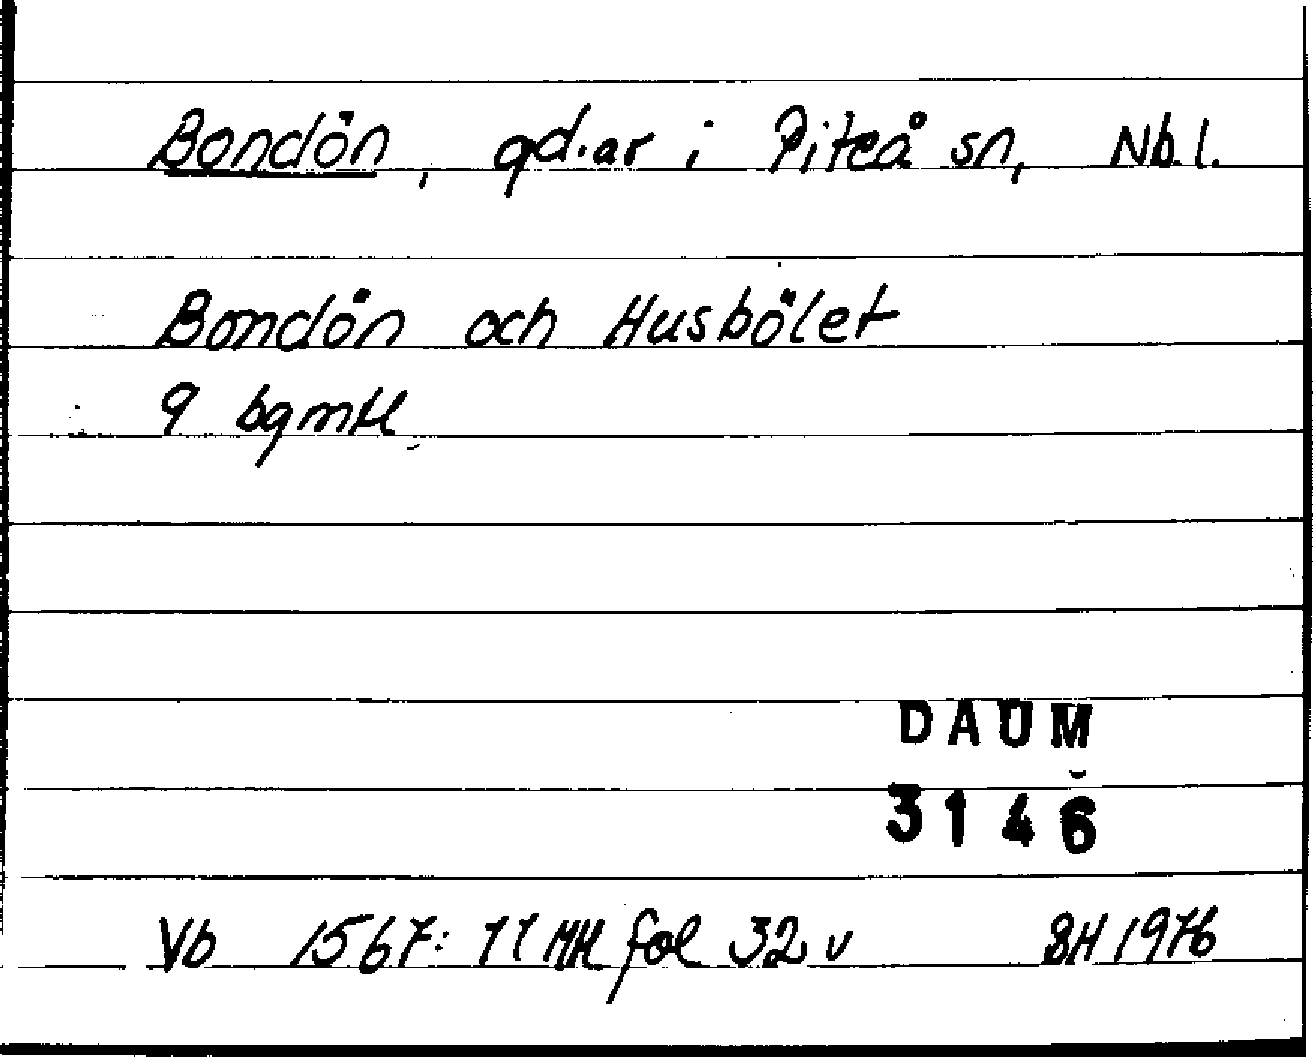 Bondön, gd.ar i Piteå sn, Nb.l.
Bondön och Husbölet
9 bgmtl
DAUM
3146
Vb 1567: 11 MH fol 32 v BH 1976